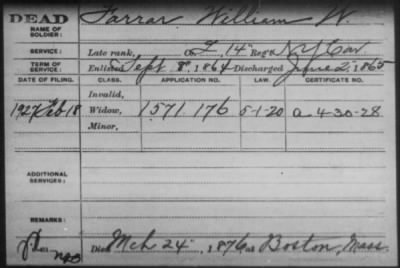 DEAD
NAME OF SOLDIER: Farrar William W.
SERVICE: Late rank, Co. F, 14" Reg't N.Y. Cav.
TERM OF SERVICE: Enlisted Sept 8", 1864 Discharged June 2, 1865
DATE OF FILING. CLASS. APPLICATION NO. LAW. CERTIFICATE NO.
Invalid,
1927 Feb 18 Widow, 1571.176 5-1-20 a. 4-30-28
Minor,
ADDITIONAL SERVICES:
REMARKS:
Died Mch 24", 1876, at Boston, Mass.